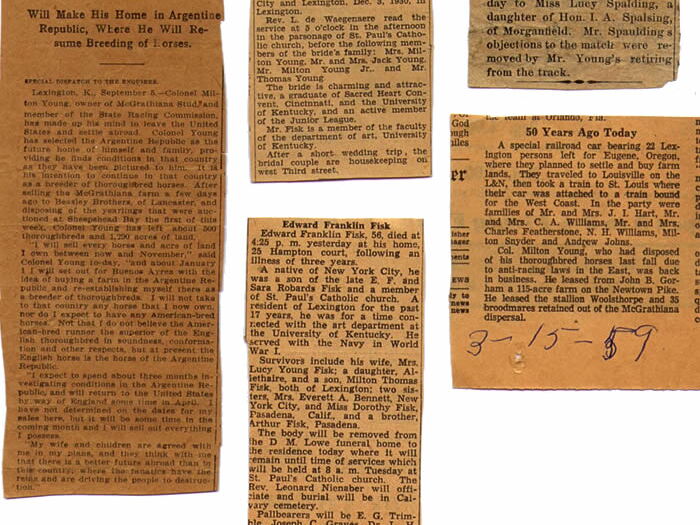 Will Make His Home in Argentine
Republic, Where He Will Re-
sume Breeding of Horses.
SPECIAL DISPATCH TO THE ENQUIRER.
Lexington, K., September 5.—Colonel Mil-
ton Young, owner of McGrathiana Stud, and
member of the State Racing Commission,
has made up his mind to leave the United
States and settle abroad. Colonel Young
has selected the Argentine Republic as the
future home of himself and family, pro-
viding he finds conditions in that country
as they have been pictured to him. It is
his intention to continue in that country
as a breeder of thoroughbred horses. After
selling the McGrathiana farm a few days
ago to Beasley Brothers, of Lancaster, and
disposing of the yearlings that were auc-
tioned at Sheepshead Bay the first of this
week, Colonel Young has left about 500
thoroughbreds and 1,290 acres of land.
"I will sell every horse and acre of land
I own between now and November," said
Colonel Young to-day, "and about January
1 I will set out for Buenos Ayres with the
idea of buying a farm in the Argentine Re-
public and re-establishing myself there as
a breeder of thoroughbreds. I will not take
to that country any horse that I now own,
nor do I expect to have any American-bred
horses. Not that I do not believe the Amer-
ican-bred runner the superior of the Eng-
lish thoroughbred in soundness, conforma-
tion and other respects, but at present the
English horse is the horse of the Argentine
Republic.
"I expect to spend about three months in-
vestigating conditions in the Argentine Re-
public, and will return to the United States
by way of England some time in April. I
have not determined on the dates for my
sales here, but it will be some time in the
coming month and I will sell out everything
I possess.
"My wife and children are agreed with
me in my plans, and they think with me
that there is a better future abroad than to
this country, where the fanatics have the
reins and are driving the people to destruc-
tion."
City and Lexington, Dec. 3, 1930, in
Lexington.
Rev. L. de Waegensaere read the
service at 5 o'clock in the afternoon
in the parsonage of St. Paul's Catho-
lic church, before the following mem-
bers of the bride's family: Mrs. Mil-
ton Young, Mr. and Mrs. Jack Young,
Mr. Milton Young Jr., and Mr.
Thomas Young
The bride is charming and attrac-
tive, a graduate of Sacred Heart Con-
vent, Cincinnati, and the University
of Kentucky, and an active member
of the Junior League.
Mr. Fisk is a member of the faculty
of the department of art, University
of Kentucky.
After a short wedding trip, the
bridal couple are housekeeping on
west Third street.
Edward Franklin Fisk
Edward Franklin Fisk, 56, died at
4:25 p. m. yesterday at his home,
25 Hampton court, following an
illness of three years.
A native of New York City, he
was a son of the late E. F. and
Sara Robards Fisk and a member
of St. Paul's Catholic church. A
resident of Lexington for the past
17 years, he was for a time con-
nected with the art department at
the University of Kentucky. He
served with the Navy in World
War I.
Survivors include his wife, Mrs.
Lucy Young Fisk; a daughter, Al-
iethaire, and a son, Milton Thomas
Fisk, both of Lexington; two sis-
ters, Mrs. Everett A. Bennett, New
York City, and Miss Dorothy Fisk,
Pasadena, Calif., and a brother,
Arthur Fisk, Pasadena.
The body will be removed from
the D M. Lowe funeral home to
the residence today where it will
remain until time of services which
will be held at 8 a. m. Tuesday at
St. Paul's Catholic church. The
Rev. Leonard Nienaber will offi-
ciate and burial will be in Cal-
vary cemetery.
Pallbearers will be E. G. Trim-
ble, Joseph C. Graves, Dr. J. H.
day to Miss Lucy Spalding, a
daughter of Hon. I. A. Spalsing,
of Morganfield. Mr. Spaulding's
objections to the match were re-
moved by Mr. Young's retiring
from the track.
50 Years Ago Today
A special railroad car bearing 22 Lex-
ington persons left for Eugene, Oregon,
where they planned to settle and buy farm
lands. They traveled to Louisville on the
L&N, then took a train to St. Louis where
their car was attached to a train bound
for the West Coast. In the party were
families of Mr. and Mrs. J. I. Hart, Mr.
and Mrs. C. A. Williams, Mr. and Mrs.
Charles Featherstone, N. H. Williams, Mil-
ton Snyder and Andrew Johns.
Col. Milton Young, who had disposed
of his thoroughbred horses last fall due
to anti-racing laws in the East, was back
in business. He leased from John B. Gor-
ham a 115-acre farm on the Newtown Pike.
He leased the stallion Woolsthorpe and 35
broodmares retained out of the McGrathiana
dispersal.
3-15-59